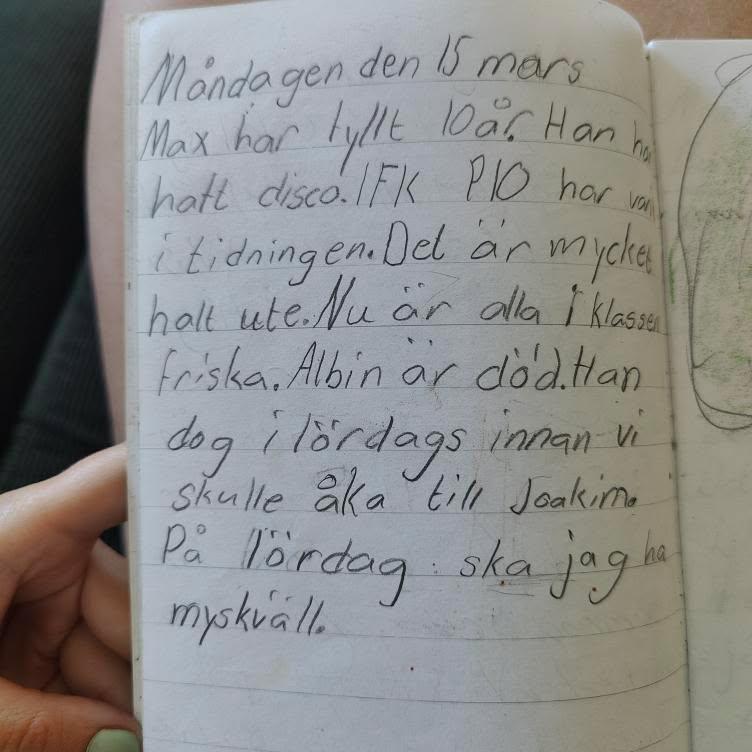 Måndagen den 15 mars
Max har fyllt 10 år. Han ha
haft disco. IFK P10 har vari
i tidningen. Det är mycket
halt ute. Nu är alla i klassen
friska. Albin är död. Han
dog i lördags innan vi
skulle åka till Joakim.
På lördag ska jag ha
myskväll.